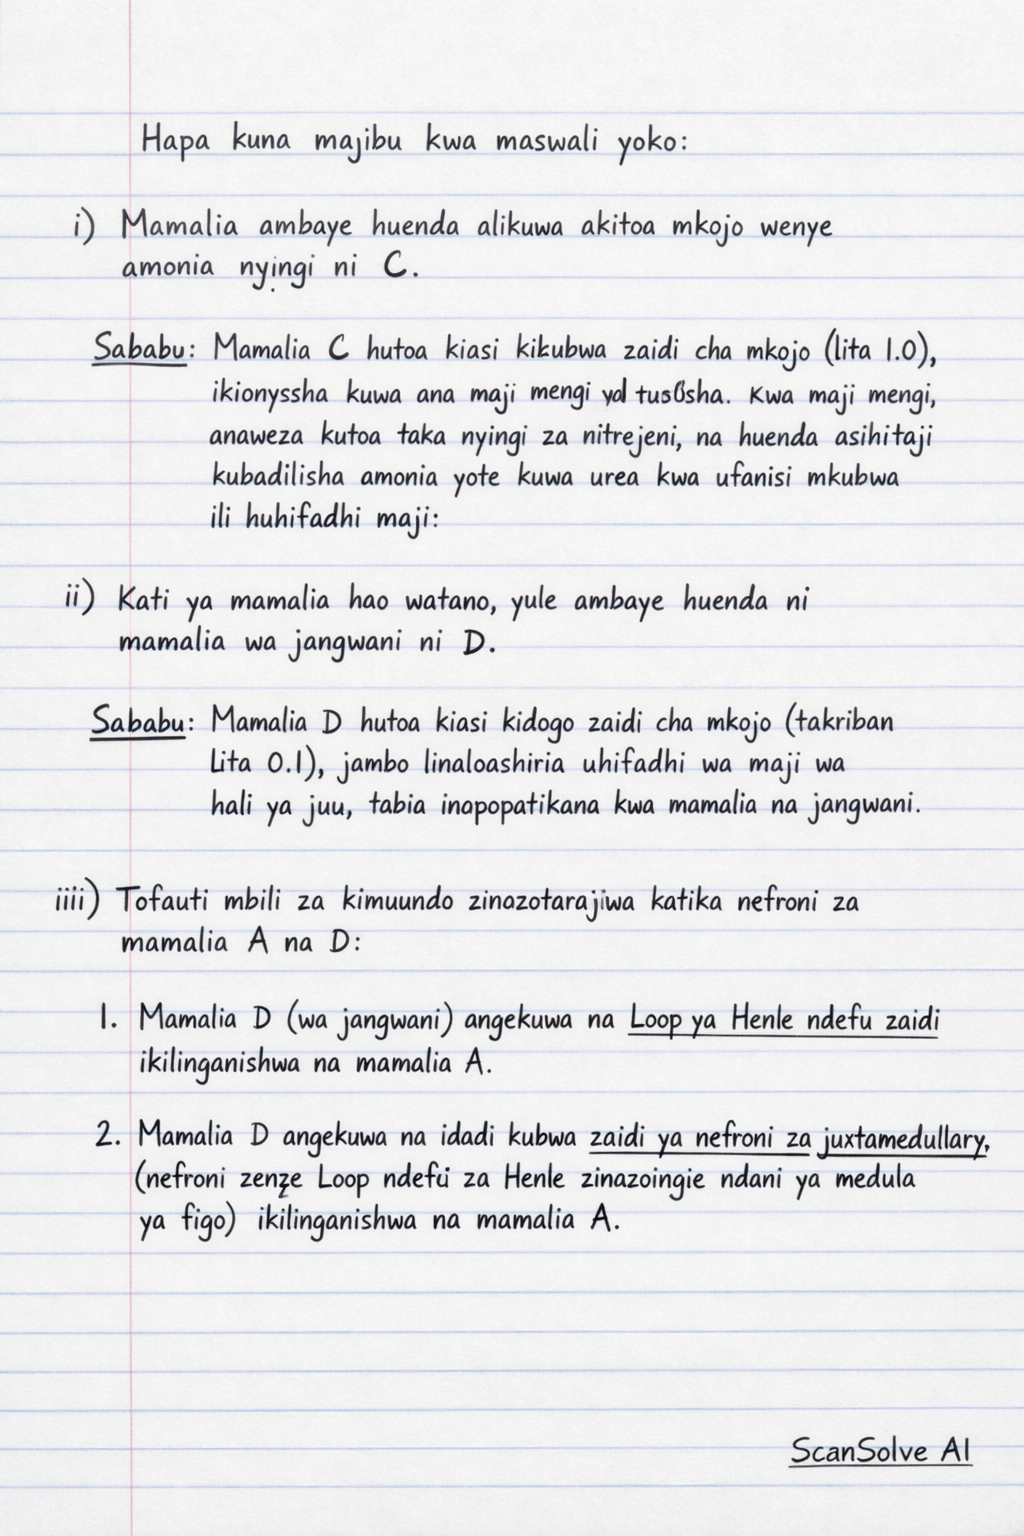 Hapa kuna majibu kwa maswali yoko:
i) Mamalia ambaye huenda alikuwa akitoa mkojo wenye
amonia nyingi ni C.
Sababu: Mamalia C hutoa kiasi kikubwa zaidi cha mkojo (lita 1.0),
ikionyssha kuwa ana maji mengi. Kwa maji mengi,
anaweza kutoa taka nyingi za nitrejeni, na huenda asihitaji
kubadilisha amonia yote kuwa urea kwa ufanisi mkubwa
ili huhifadhi maji:
ii) Kati ya mamalia hao watano, yule ambaye huenda ni
mamalia wa jangwani ni D.
Sababu: Mamalia D hutoa kiasi kidogo zaidi cha mkojo (takriban
Lita 0.1), jambo linaloashiria uhifadhi wa maji wa
hali ya juu, tabia inapopatikana kwa mamalia na jangwani.
iiii) Tofauti mbili za kimuundo zinazotarajiwa katika nefroni za
mamalia A na D:
1. Mamalia D (wa jangwani) angekuwa na Loop ya Henle ndefu zaidi
ikilinganishwa na mamalia A.
2. Mamalia D angekuwa na idadi kubwa zaidi ya nefroni za juxtamedullary,
(nefroni Loop ndefu za Henle zinazoingie ndani ya medula
ya figo) ikilinganishwa na mamalia A.
ScanSolve AI